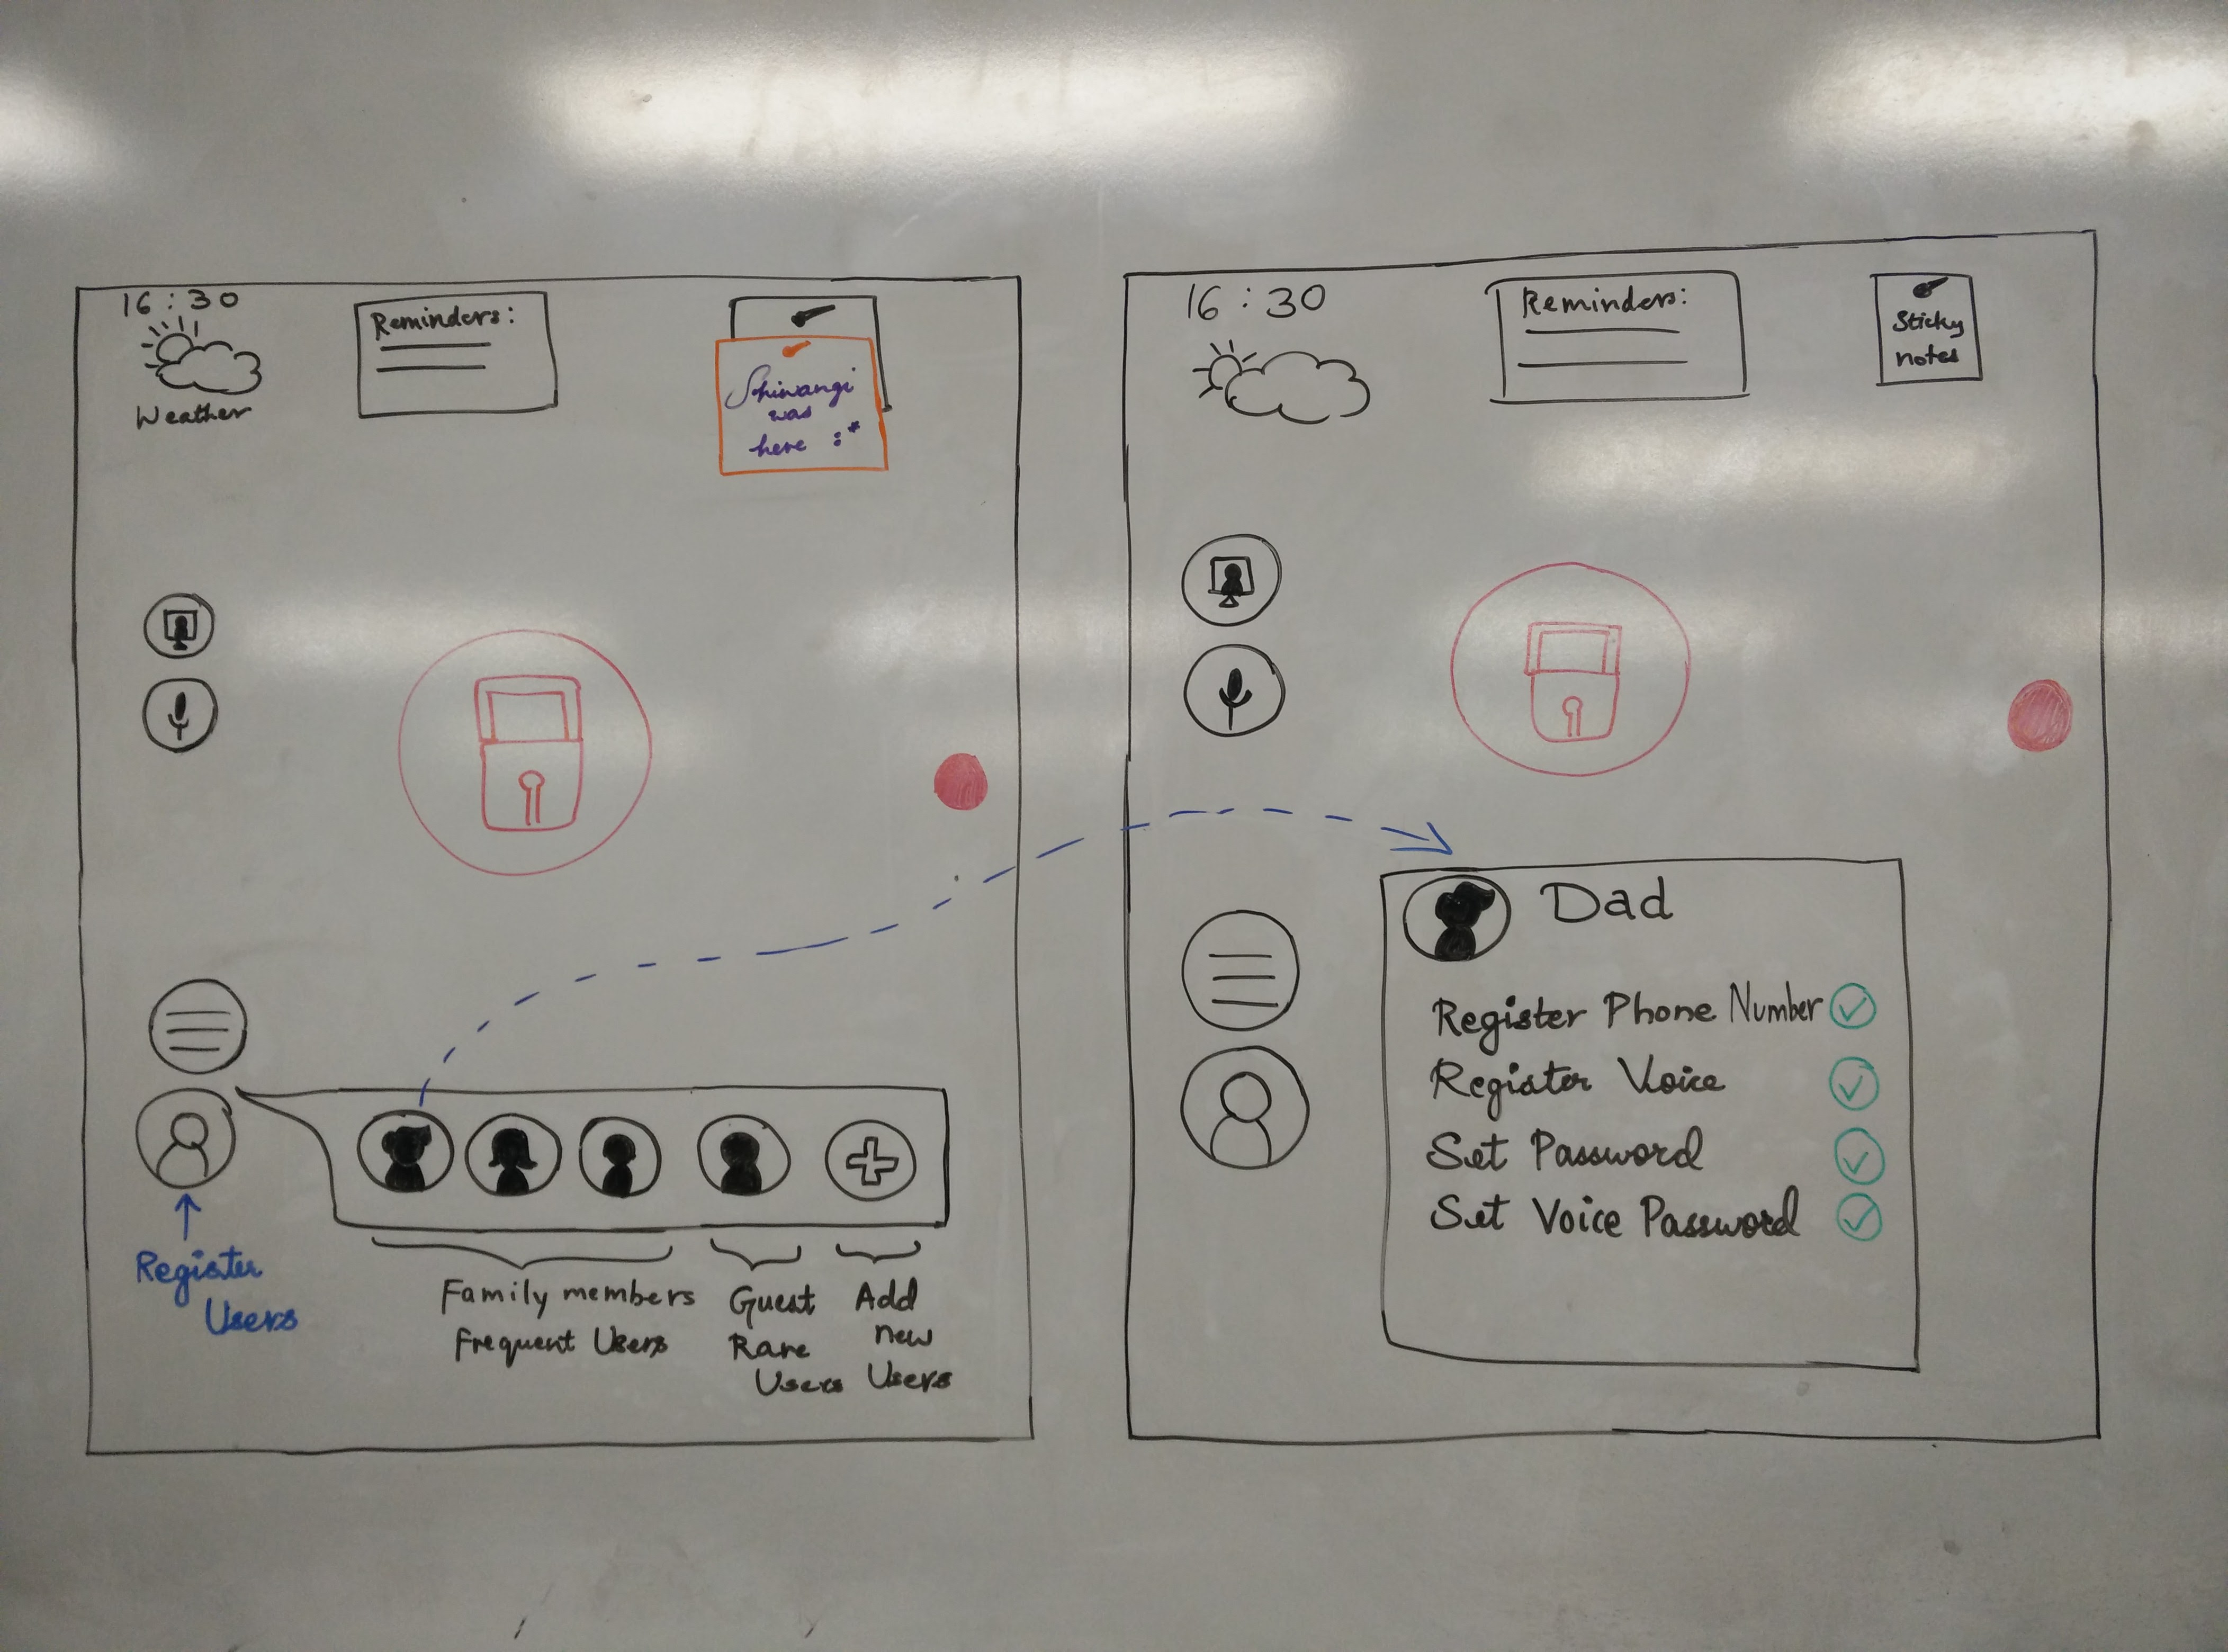 16:30
Weather
Reminders:
Shiwangi
was
here :*
Register
Users
Family members
Frequent Users
Guest
Rare
Users
Add
new
Users
16:30
Reminders:
Sticky
notes
Dad
Register Phone Number
Register Voice
Set Password
Set Voice Password